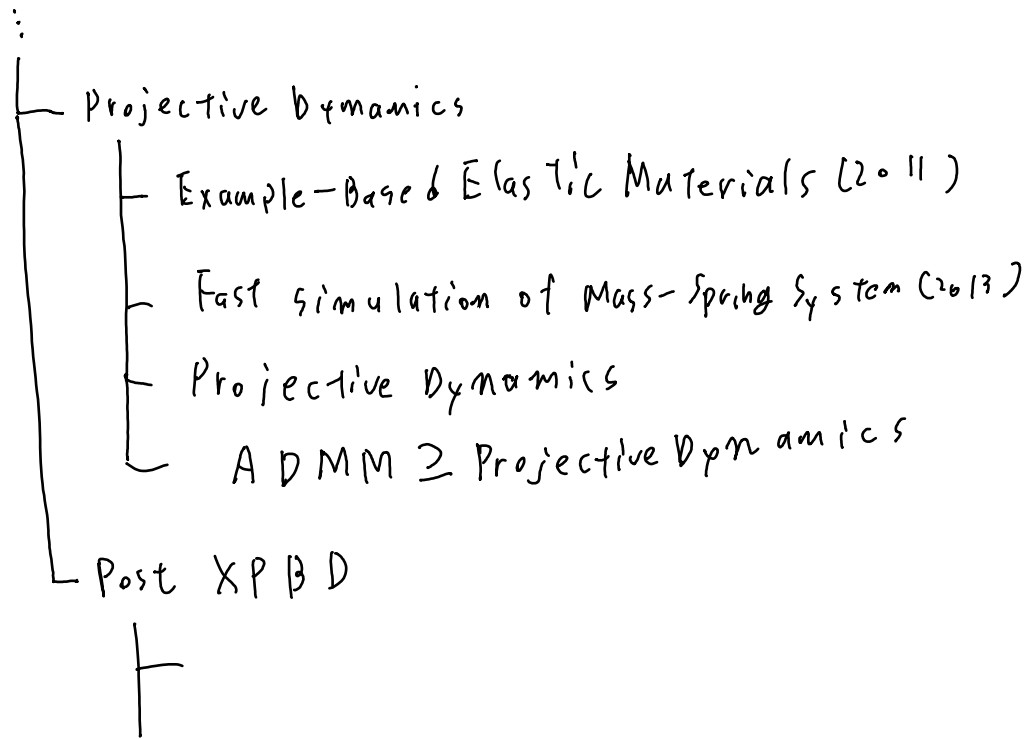 Projective Dynamics
Example-Based Elastic Materials (2011)
Fast simulation of Mass-Spring System (2013)
Projective Dynamics
ADMM ⊇ Projective Dynamics
Post XPBD